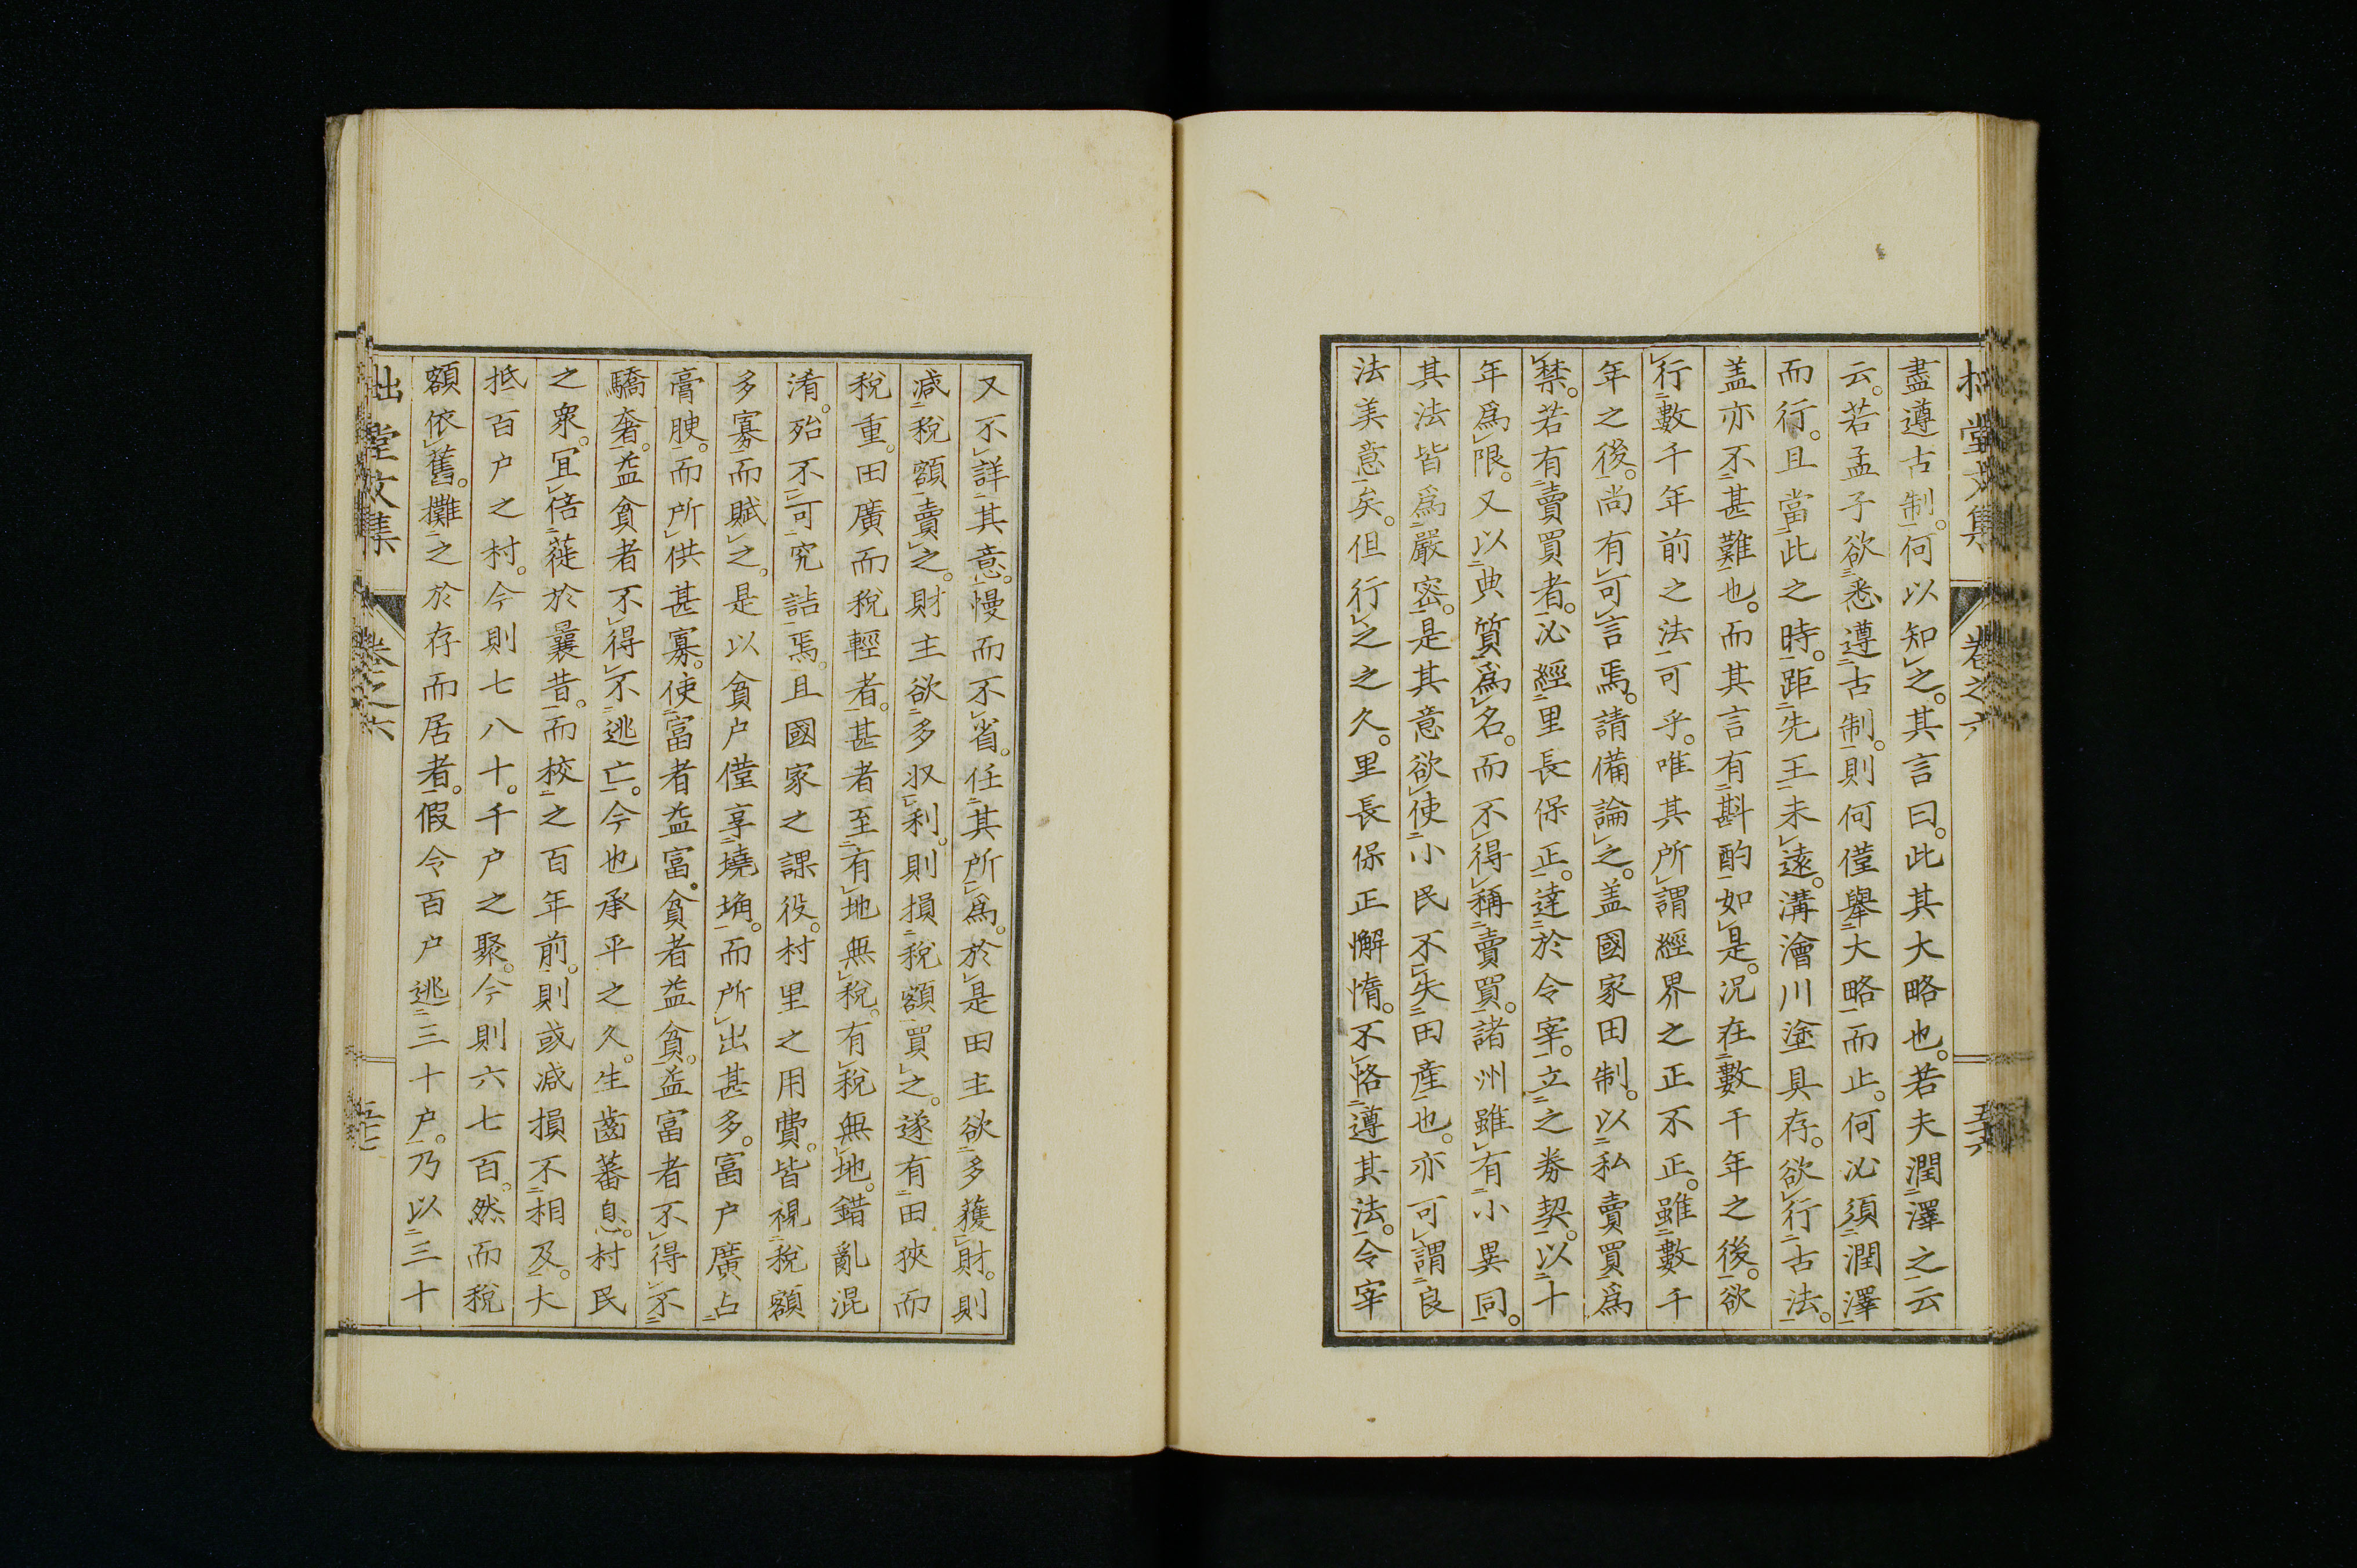 盡遵古制。何以知之。其言曰。此其大略也。若夫潤澤之云
云。若孟子欲悉遵古制。則何僅擧大略而止。何必須潤澤
而行。且當此之時。距先王未遠。溝澮川塗具存。欲行古法。
盖亦不甚難也。而其言有斟酌如是。况在數千年之後。欲
行數千年前之法可乎。唯其所謂經界之正不正。雖數千
年之後。尚有可言焉。請備論之。盖國家田制。以私賣買爲
禁。若有賣買者。必經里長保正。達於令宰。立之券契。以十
年爲限。又以典質爲名。而不得稱賣買。諸州雖有小異同。
其法皆爲嚴密。是其意欲使小民不失田産也。亦可謂良
法美意矣。但行之之久。里長保正懈惰。不恪遵其法。令宰
卷之六
又不詳其意。慢而不省。任其所爲。於是田主欲多獲財。則
减税額賣之。財主欲多収利。則損税額買之。遂有田狹而
税重。田廣而税輕者。甚者至有地無税。有税無地。錯亂混
淆。殆不可究詰焉。且國家之課役。村里之用費。皆視税額
多寡而賦之。是以貧户僅享墝埆。而所出甚多。富户廣占
膏腴。而所供甚寡。使富者益富。貧者益貧。益富者不得不
驕奢。益貧者不得不逃亡。今也承平之久。生齒蕃息。村民
之衆。宜倍蓰於曩昔。而校之百年前。則或减損不相及。大
抵百户之村。今則七八十。千户之聚。今則六七百。然而税
額依舊。攤之於存而居者。假令百户逃三十户。乃以三十
堂文集
卷之六